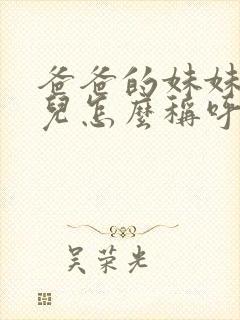 爸爸的妹妹
兒怎麼稱呼
吴荣光